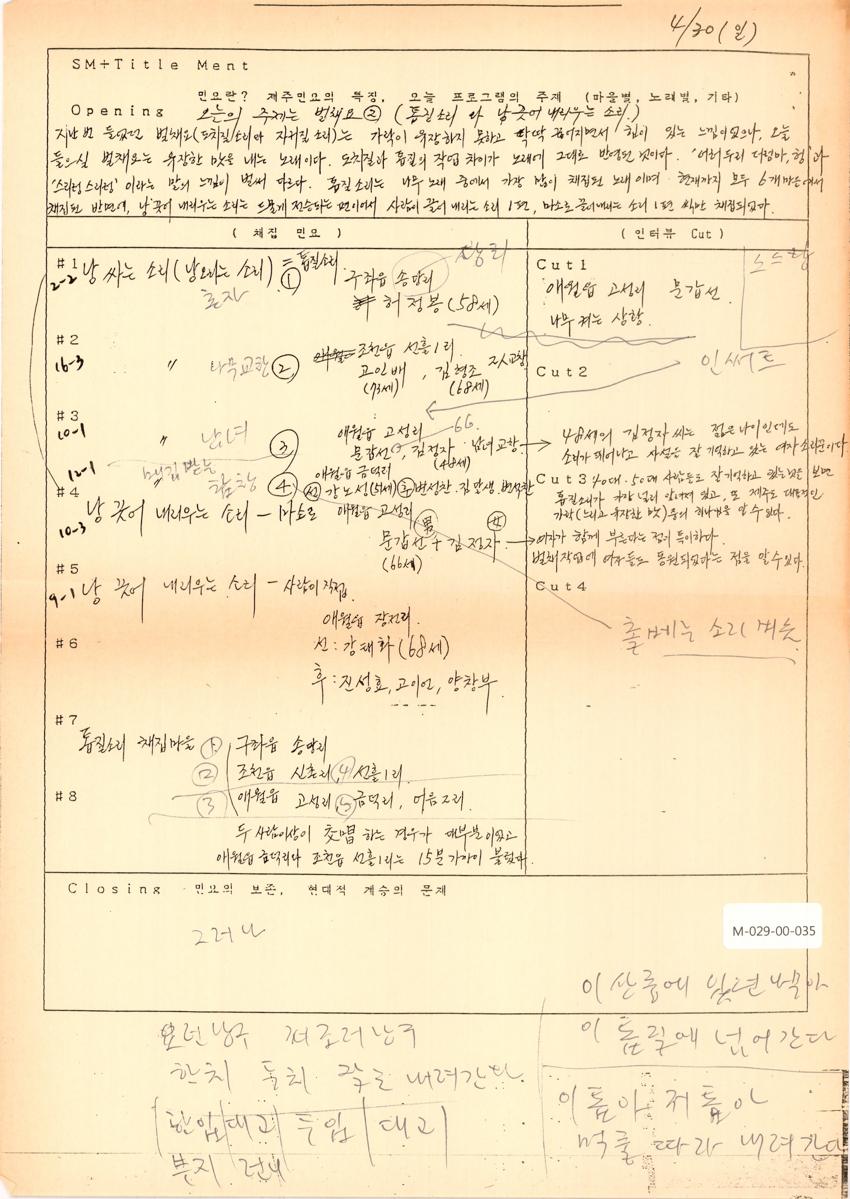 4/30(일)
SM+Title Ment
민요란? 제주민요의 특징, 오늘 프로그램의 주제 (마을별, 노래별, 기타)
Opening 오늘의 주제는 벌채요 ② (톱질소리와 낭 끗어 내리우는 소리.)
지난번 들었던 벌채요(도치질소리와 자귀질 소리)는 가락이 유장하지 못하고 딱딱 끊어지면서 힘이 있는 느낌이었으나, 오늘
들으실 벌채요는 유장한 맛을 내는 노래이다. 도치질과 톱질의 작업 차이가 노래에 그대로 반영된 것이다.
이라는 말의 느낌이 벌써 다르다. 톱질 소리는 나무 노래 중에서 가장 많이 채집된 노래이며 현재까지 모두 6개 마을에서
채집된 반면에, 낭 끗어 내리우는 소리는 드물게 전승되는 편이어서 사람이 끌어 내리는 소리 1편, 마소로 끌어내리는 소리 1편 씩만 채집되었다.
( 채집 민요 )
( 인터뷰 Cut )
#1
2-2 낭 싸는 소리(낭 오리는 소리) = 톱질소리
혼자 ①
구좌읍 송당리
허정봉(58세)
Cut1
애월읍 고성리 문갑선
나무 켜는 상황.
#2
16-3 〃 나무교환 ②
조천읍 선흘1리
고인배, 김형조 2人교창
(73세) (68세)
Cut2
인써트
#3
10-1 〃 남녀 ③
애월읍 고성리 66
문갑선, 김정자 남녀교창
(48세)
48세의 김정자 씨는 젊은 나이인데도
소리가 뛰어나고 사설을 잘 기억하고 있는 여자 소리꾼이다.
12-1 합창 ④
애월읍 금덕리
선 강노성(51세) 후 변성찬
Cut3 40대·50대 사람들도 잘 기억하고 있는 것을 보면
톱질소리가 널리 알려져 있고, 또 제주도 대표적인
가락(느리고 유장한 맛)중의 하나임을 알 수 있다.
#4
10-3 낭 끗어 내리우는 소리 - 마소로 애월읍 고성리
男 女
문갑선 + 김정자
(66세)
여자가 함께 부른다는 점이 특이하다.
벌채작업에 여자들도 동원되었다는 점을 알 수 있다.
#5
9-1 낭 끗어 내리우는 소리 - 사람이 직접
애월읍 장전리
Cut4
촐베는 소리 비슷
#6
선: 강태화(68세)
후: 진성효, 고이언, 양창부
#7
톱질소리 채집마을 ① 구좌읍 송당리
② 조천읍 신촌리, ④ 선흘1리
#8
③ 애월읍 고성리, ⑤ 금덕리, 어음2리
두 사람이상이 交唱 하는 경우가 대부분이었고
애월읍 금덕리와 조천읍 선흘1리는 15분 가까이 불렀다.
Closing 민요의 보존, 현대적 계승의 문제
그러나
M-029-00-035
이 산중에 있던 나무아
이 톱질에 넘어간다
요런 낭구 저조러 낭구
한치 두치 내려간다
한입 대고 두입 대고
이 톱아 저 톱아
먹줄 따라 내려간다